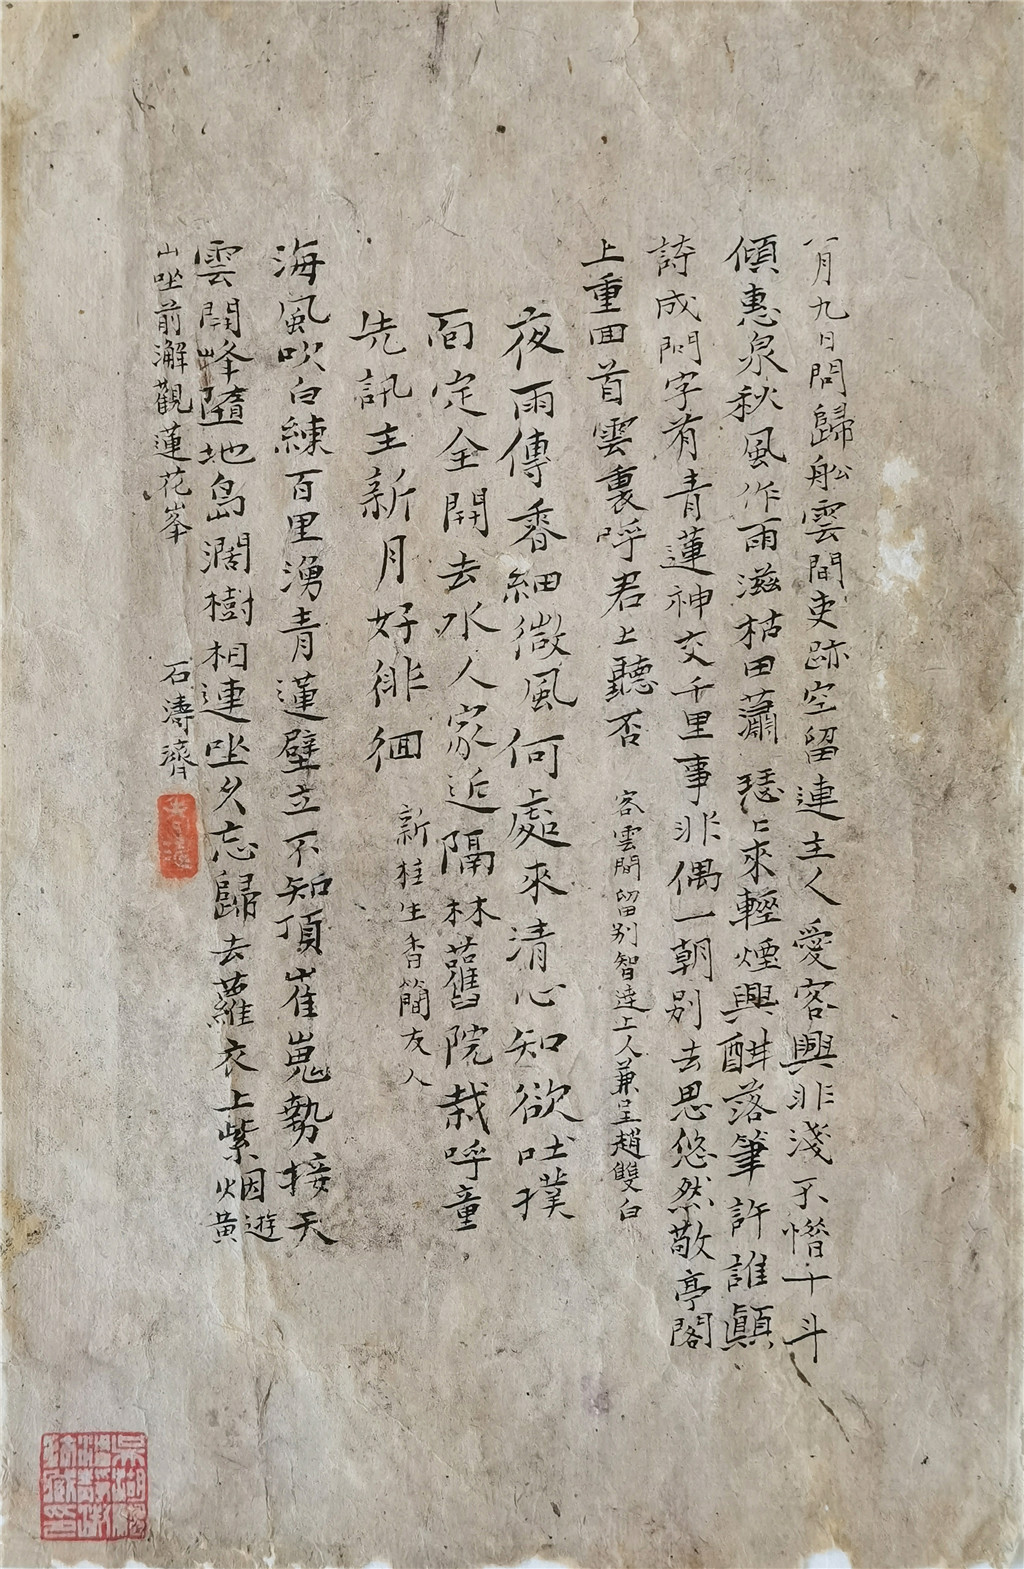 八月九日問歸船雲間吏跡空留連主人愛客興非淺不惜十斗
傾惠泉秋風作雨滋枯田蕭瑟瑟來輕煙興酣落筆許誰顛
詩成問字肴青蓮神交千里事非偶一朝別去思悠然敬亭閣
上重回首雲裏呼君君聽否
客雲間留別智達上人兼呈趙雙白
夜雨傳香細微風何處來清心知欲吐撲
面定全開去水人家近隔林舊院栽呼童
先訊主新月好徘徊
新桂生香簡友人
海風吹白練百里湧青蓮壁立不知頂崔嵬勢接天
雲開峰墮地島濶樹相連坐久忘歸去蘿衣上紫烟
遊黃
山坐前澥觀蓮花峯
石濤濟